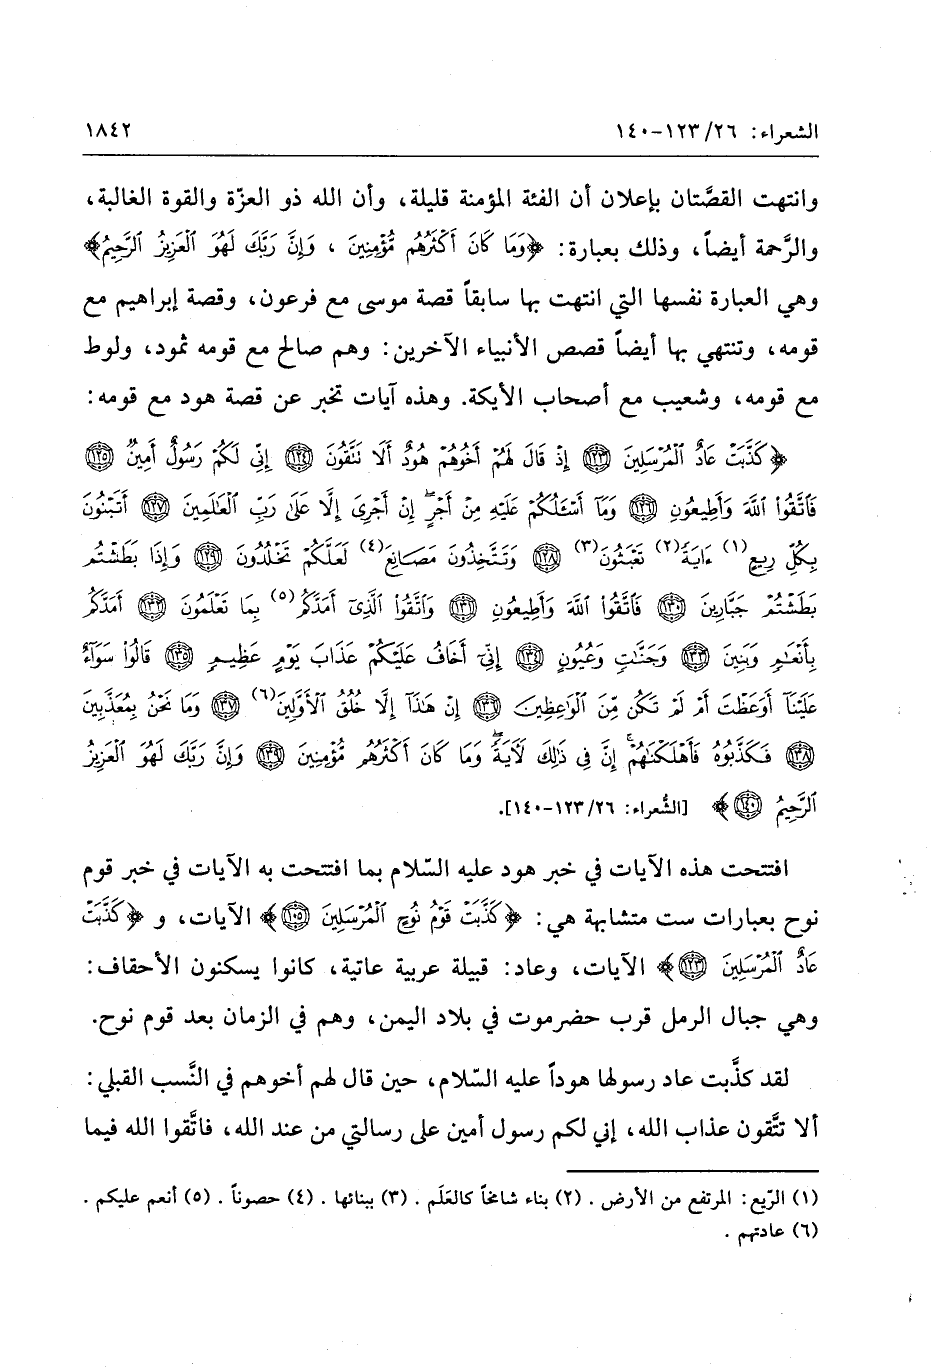 الشعراء: ٢٦/ ١٢٣-١٤٠ ١٨٤٢
وانتهت القصَّتان بإعلان أن الفئة المؤمنة قليلة، وأن الله ذو العزّة والقوة الغالبة،
والرَّحمة أيضاً، وذلك بعبارة: ﴿وَمَا كَانَ أَكْثَرُهُم مُّؤْمِنِينَ ، وَإِنَّ رَبَّكَ لَهُوَ ٱلْعَزِيزُ ٱلرَّحِيمُ﴾
وهي العبارة نفسها التي انتهت بها سابقاً قصة موسى مع فرعون، وقصة إبراهيم مع
قومه، وتنتهي بها أيضاً قصص الأنبياء الآخرين: وهم صالح مع قومه ثمود، ولوط
مع قومه، وشعيب مع أصحاب الأيكة. وهذه آيات تخبر عن قصة هود مع قومه:
﴿كَذَّبَتْ عَادٌ ٱلْمُرْسَلِينَ ١٢٣ إِذْ قَالَ لَهُمْ أَخُوهُمْ هُودٌ أَلَا تَتَّقُونَ ١٢٤ إِنِّي لَكُمْ رَسُولٌ أَمِينٌ ١٢٥
فَٱتَّقُوا۟ ٱللَّهَ وَأَطِيعُونِ ١٢٦ وَمَآ أَسْـَٔلُكُمْ عَلَيْهِ مِنْ أَجْرٍ إِنْ أَجْرِىَ إِلَّا عَلَىٰ رَبِّ ٱلْعَـٰلَمِينَ ١٢٧ أَتَبْنُونَ
بِكُلِّ رِيعٍ(١) ءَايَةً(٢) تَعْبَثُونَ(٣) ١٢٨ وَتَتَّخِذُونَ مَصَانِعَ(٤) لَعَلَّكُمْ تَخْلُدُونَ ١٢٩ وَإِذَا بَطَشْتُم
بَطَشْتُمْ جَبَّارِينَ ١٣٠ فَٱتَّقُوا۟ ٱللَّهَ وَأَطِيعُونِ ١٣١ وَٱتَّقُوا۟ ٱلَّذِىٓ أَمَدَّكُم(٥) بِمَا تَعْلَمُونَ ١٣٢ أَمَدَّكُم
بِأَنْعَـٰمٍ وَبَنِينَ ١٣٣ وَجَنَّـٰتٍ وَعُيُونٍ ١٣٤ إِنِّىٓ أَخَافُ عَلَيْكُمْ عَذَابَ يَوْمٍ عَظِيمٍ ١٣٥ قَالُوا۟ سَوَآءٌ
عَلَيْنَآ أَوَعَظْتَ أَمْ لَمْ تَكُن مِّنَ ٱلْوَٰعِظِينَ ١٣٦ إِنْ هَـٰذَآ إِلَّا خُلُقُ ٱلْأَوَّلِينَ(٦) ١٣٧ وَمَا نَحْنُ بِمُعَذَّبِينَ
١٣٨ فَكَذَّبُوهُ فَأَهْلَكْنَـٰهُمْ إِنَّ فِى ذَٰلِكَ لَـَٔايَةً وَمَا كَانَ أَكْثَرُهُم مُّؤْمِنِينَ ١٣٩ وَإِنَّ رَبَّكَ لَهُوَ ٱلْعَزِيزُ
ٱلرَّحِيمُ ١٤٠﴾ [الشُّعراء: ٢٦/ ١٢٣-١٤٠].
افتتحت هذه الآيات في خبر هود عليه السّلام بما افتتحت به الآيات في خبر قوم
نوح بعبارات ست متشابهة هي: ﴿كَذَّبَتْ قَوْمُ نُوحٍ ٱلْمُرْسَلِينَ ١٠٥﴾ الآيات، و ﴿كَذَّبَتْ
عَادٌ ٱلْمُرْسَلِينَ ١٢٣﴾ الآيات، وعاد: قبيلة عربية عاتية، كانوا يسكنون الأحقاف:
وهي جبال الرمل قرب حضرموت في بلاد اليمن، وهم في الزمان بعد قوم نوح.
لقد كذَّبت عاد رسولها هوداً عليه السّلام، حين قال لهم أخوهم في النَّسب القبلي:
ألا تتَّقون عذاب الله، إني لكم رسول أمين على رسالتي من عند الله، فاتَّقوا الله فيما
(١) الرّيع: المرتفع من الأرض . (٢) بناء شامخاً كالعَلَم . (٣) ببنائها . (٤) حصوناً . (٥) أنعم عليكم .
(٦) عادتهم .